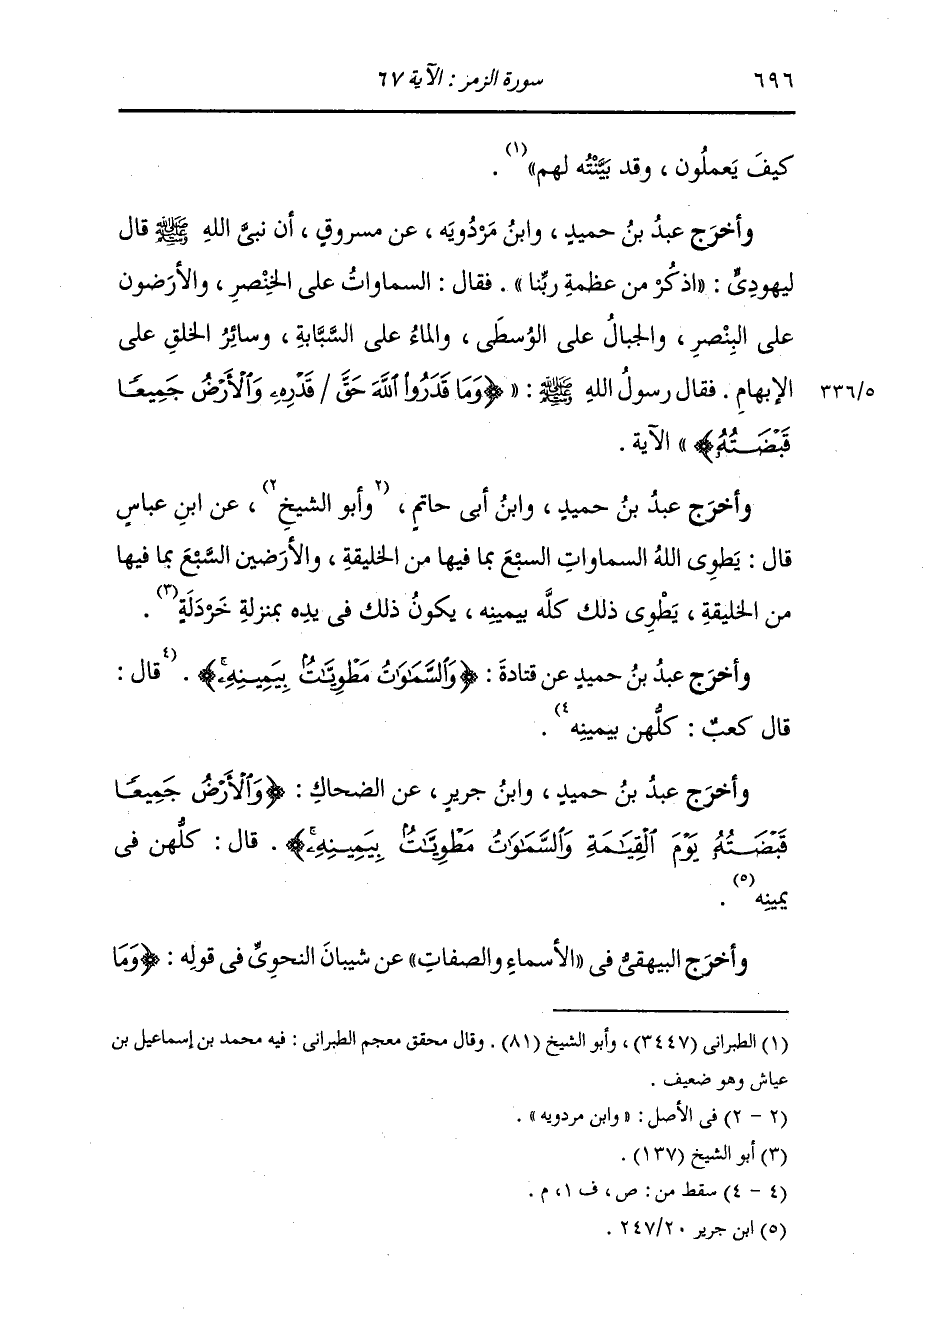 ٦٩٦ سورة الزمر : الآية ٦٧
كيفَ يَعملُون ، وقد بيَّنْتُه لهم»(١) .
وأخرَج عبدُ بنُ حميدٍ ، وابنُ مَرْدُويَه ، عن مسروقٍ ، أن نبىَّ اللهِ ﷺ قال
ليهودِىٍّ : «اذكُرْ من عظمةِ ربِّنا» . فقال : السماواتُ على الخِنْصرِ ، والأرَضون
على البِنْصرِ ، والجبالُ على الوُسطَى ، والماءُ على السَّبَّابةِ ، وسائِرُ الخلقِ على
الإبهامِ . فقال رسولُ اللهِ ﷺ : « ﴿وَمَا قَدَرُوا۟ ٱللَّهَ حَقَّ / قَدْرِهِۦ وَٱلْأَرْضُ جَمِيعًا ٣٣٦/٥
قَبْضَتُهُۥ﴾ » الآية .
وأخرَج عبدُ بنُ حميدٍ ، وابنُ أبى حاتمٍ ، (٢وأبو الشيخِ٢) ، عن ابنِ عباسٍ
قال : يَطوِى اللهُ السماواتِ السبْعَ بما فيها من الخليقةِ ، والأرَضين السَّبْعَ بما فيها
من الخليقةِ ، يَطْوِى ذلك كلَّه بيمينِه ، يكونُ ذلك فى يدِه بمنزلةِ خَرْدَلَةٍ(٣) .
وأخرَج عبدُ بنُ حميدٍ عن قتادةَ : ﴿وَٱلسَّمَـٰوَٰتُ مَطْوِيَّـٰتٌۢ بِيَمِينِهِۦۚ﴾ . (٤قال :
قال كعبٌ : كلُّهن بيمينِه٤) .
وأخرَج عبدُ بنُ حميدٍ ، وابنُ جريرٍ ، عن الضحاكِ : ﴿وَٱلْأَرْضُ جَمِيعًا
قَبْضَتُهُۥ يَوْمَ ٱلْقِيَـٰمَةِ وَٱلسَّمَـٰوَٰتُ مَطْوِيَّـٰتٌۢ بِيَمِينِهِۦۚ﴾ . قال : كلُّهن فى
يمينِه(٥) .
وأخرَج البيهقىُّ فى «الأسماءِ والصفاتِ» عن شيبانَ النحوِىِّ فى قولِه : ﴿وَمَا
(١) الطبرانى (٣٤٤٧) ، وأبو الشيخ (٨١) . وقال محقق معجم الطبرانى : فيه محمد بن إسماعيل بن
عياش وهو ضعيف .
(٢ - ٢) فى الأصل : « وابن مردويه » .
(٣) أبو الشيخ (١٣٧) .
(٤ - ٤) سقط من : ص ، ف ١ ، م .
(٥) ابن جرير ٢٤٧/٢٠ .